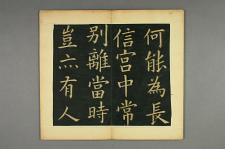 何能為長
信宫中常
别離當時
豈亦有人